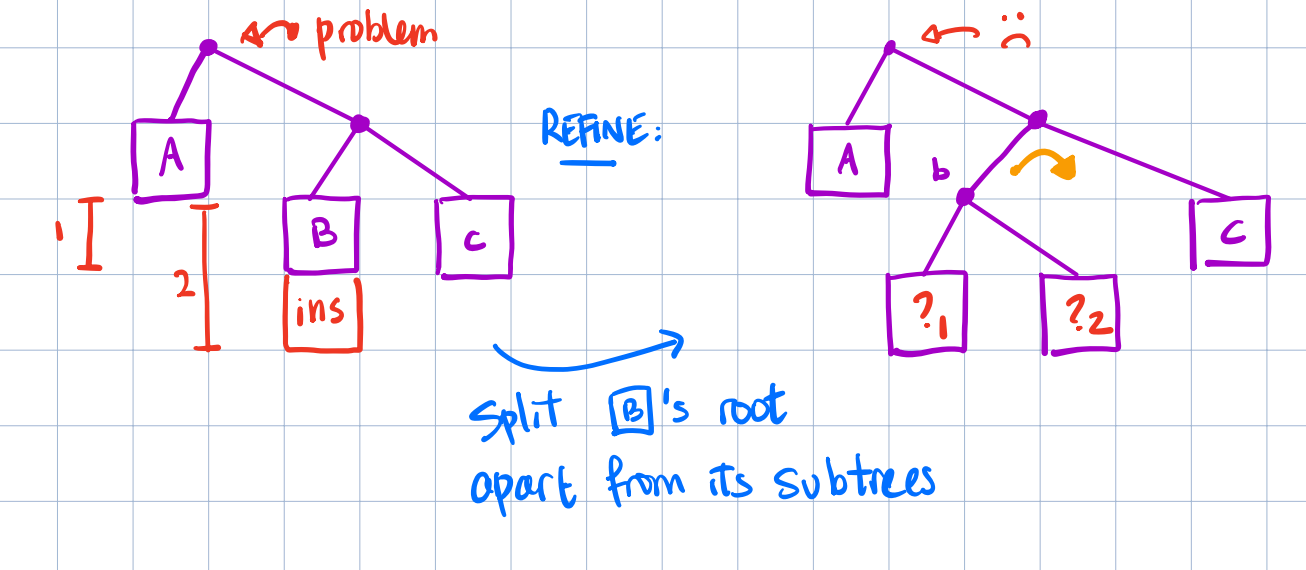 problem
A
1
2
B
C
ins
REFINE:
Split B's root
apart from its subtrees
:(
A
b
C
?1
?2